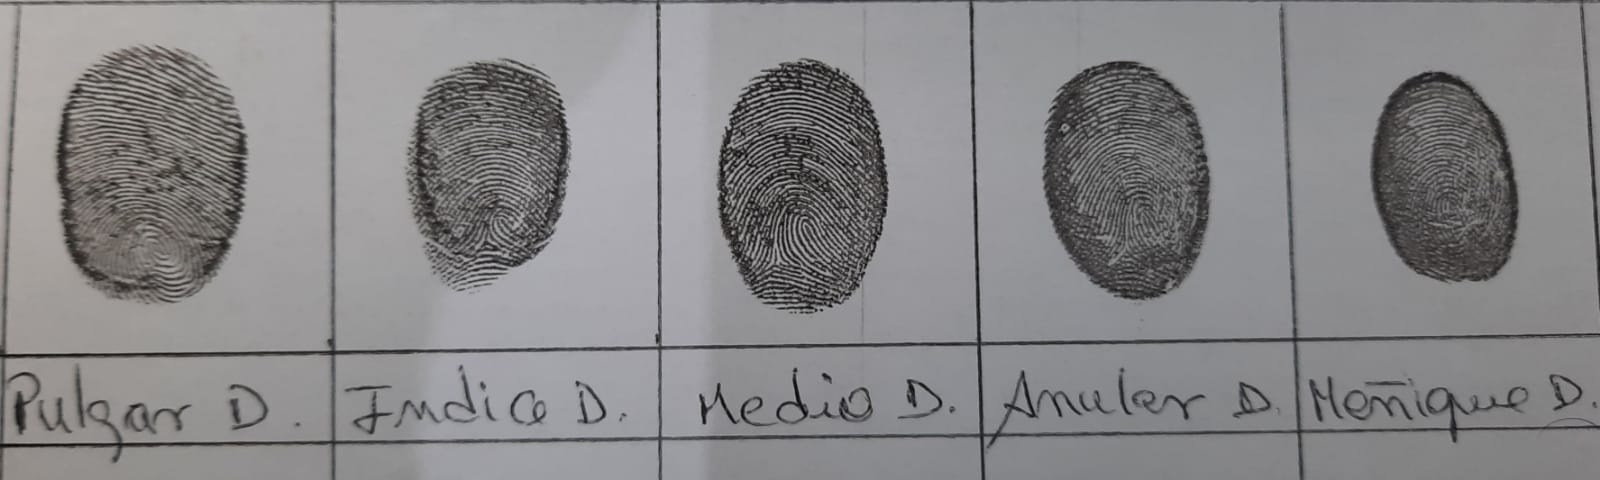 Pulgar D.
Indice D.
Medio D.
Anular D.
Meñique D.